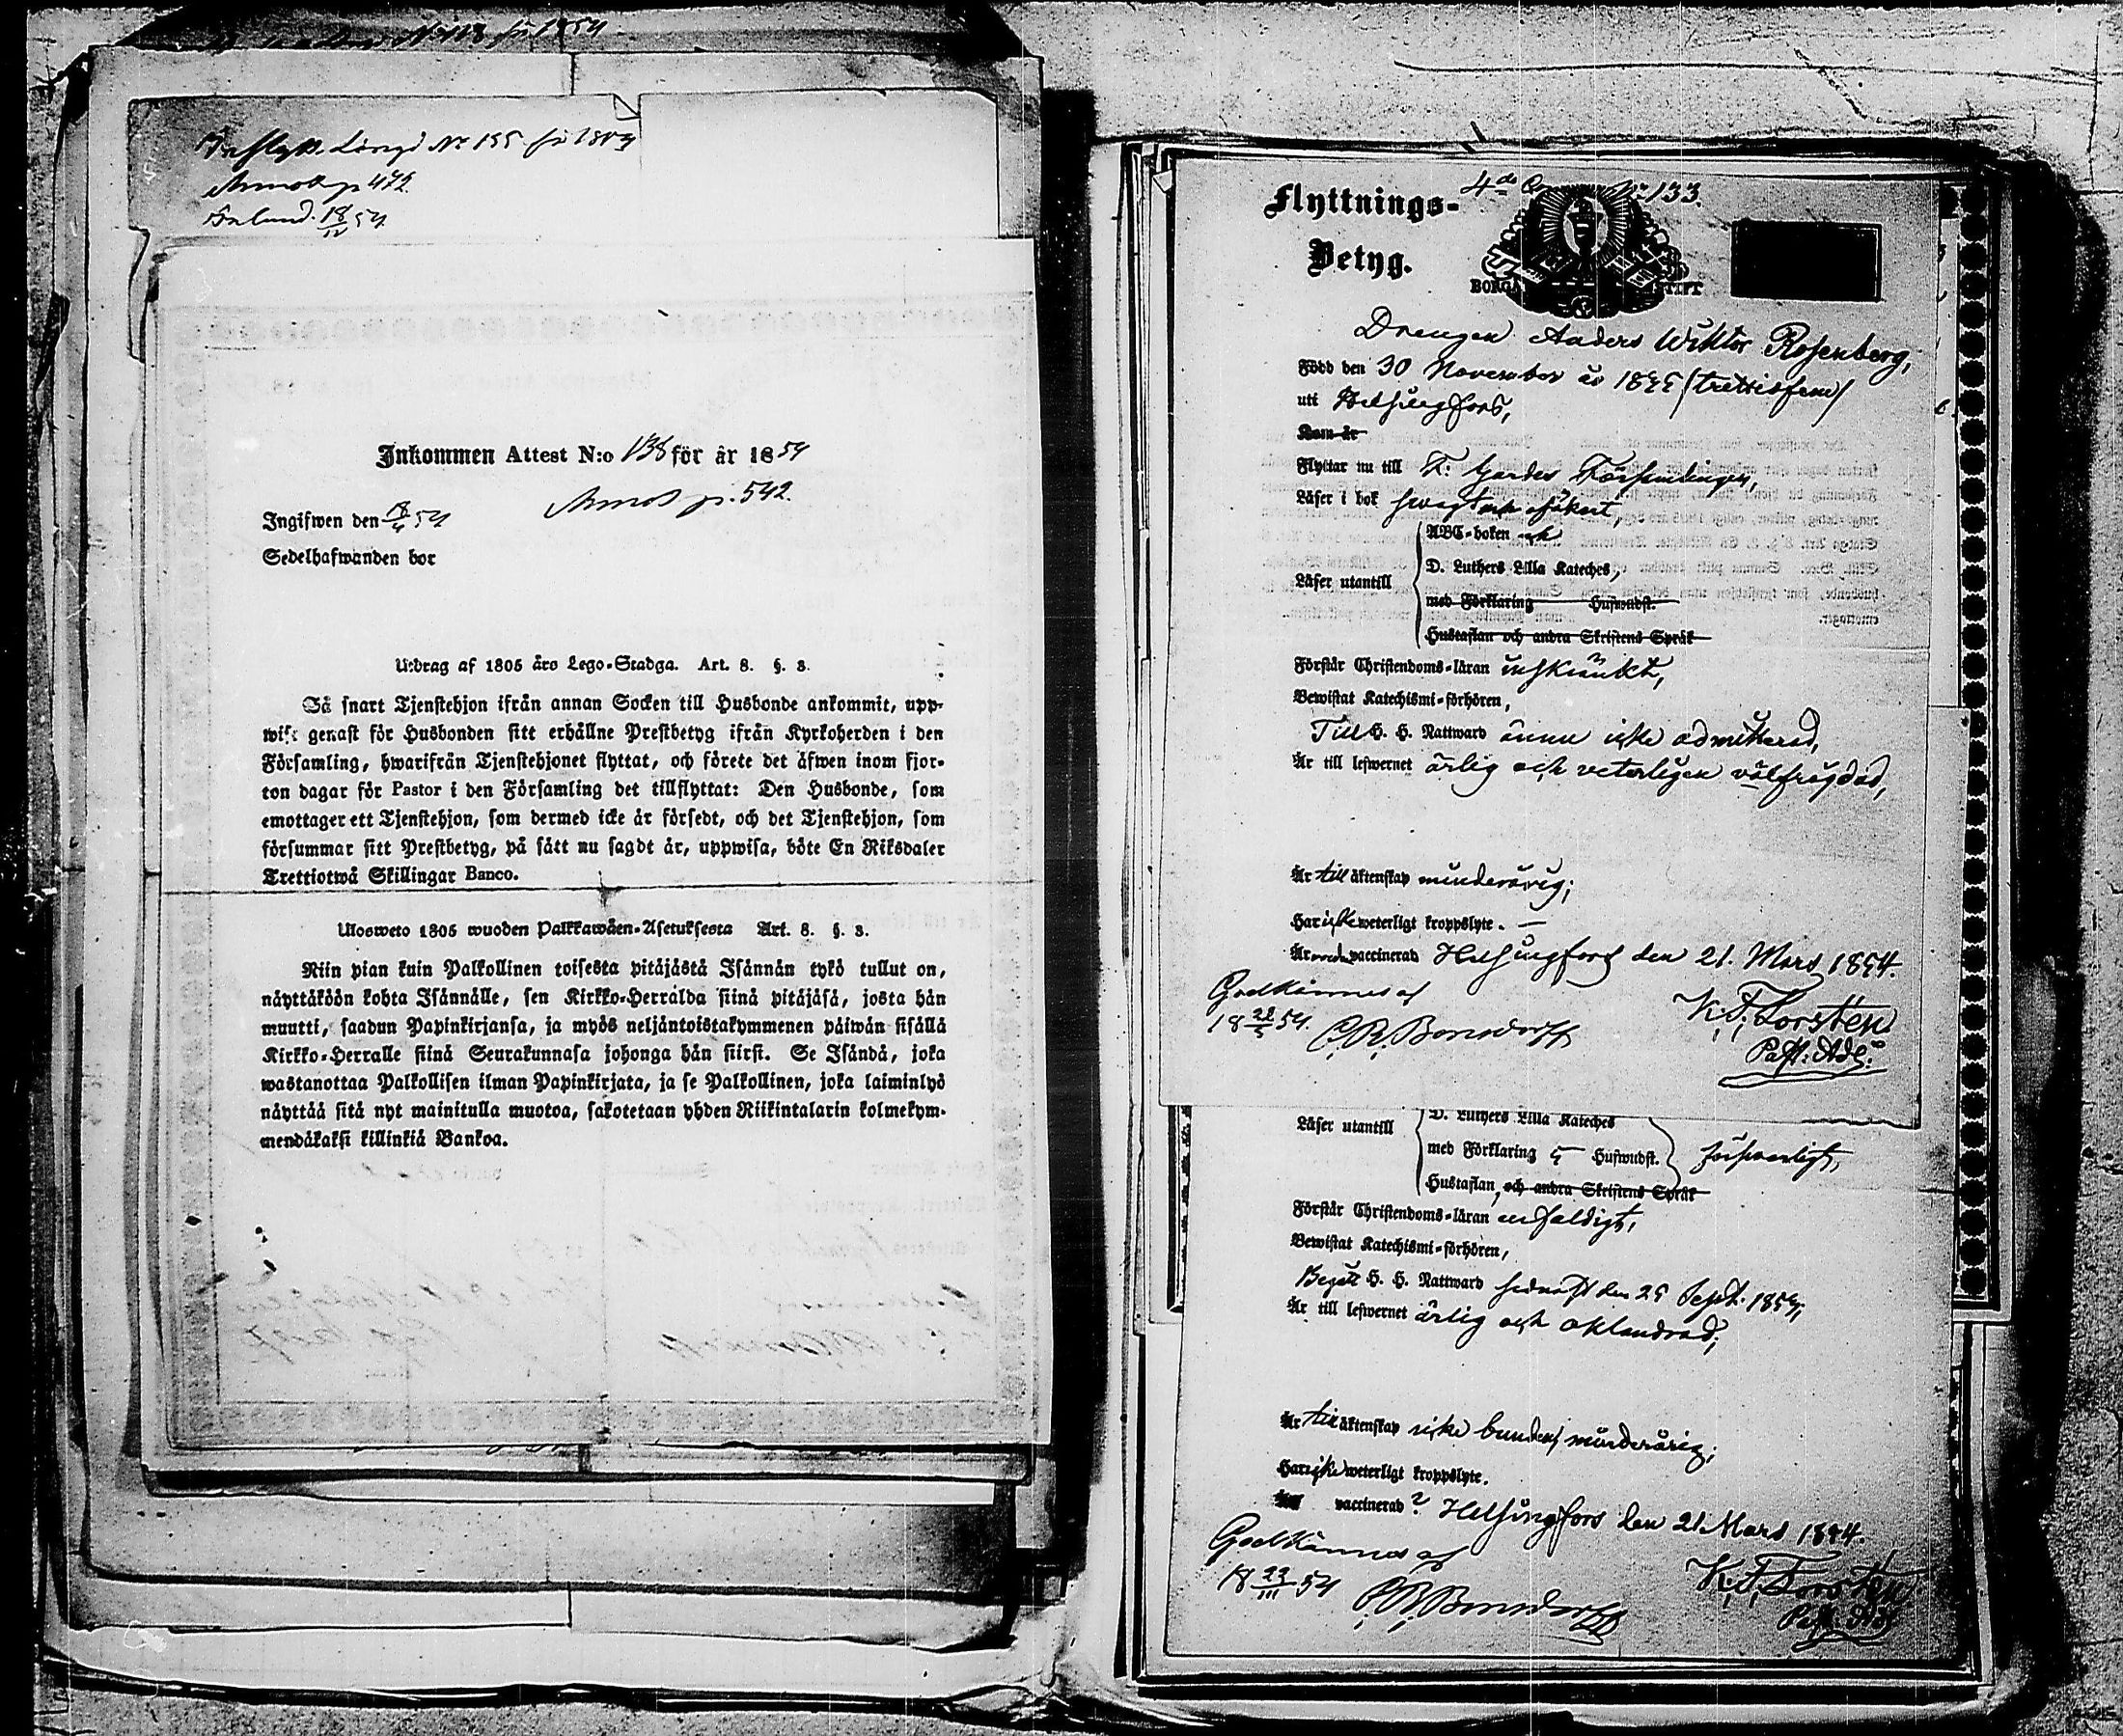 Inflytt. Längd No 155 för 1854
Annot. p 472.
Inlemnad. 18/IV 54.
Inkommen Attest N:o 138 för år 1854
Annot. p. 542.
Ingifwen den 18/4 54
Sedelhafwanden bor
Utdrag af 1805 års Lego-Stadga. Art. 8. §. 3.
Så snart Tjenstehjon ifrån annan Socken till Husbonde ankommit, upp-
wise genast för Husbonden sitt erhållne Prestbetyg ifrån Kyrkoherden i den
Församling, hwarifrån Tjenstehjonet flyttat, och förete det äfwen inom fjor-
ton dagar för Pastor i den Församling det tillflyttat: Den Husbonde, som
emottager ett Tjenstehjon, som dermed icke är försedt, och det Tjenstehjon, som
försummar sitt Prestbetyg, på sätt nu sagdt är, uppwisa, böte En Riksdaler
Trettiotwå Skillingar Banco.
Ulosweto 1805 wuoden Palkkawäen-Asetuksesta Art. 8. §. 3.
Niin pian kuin Palkollinen toisesta pitäjästä Isännän tykö tullut on,
näyttäköön kohta Isännälle, sen Kirkko-Herralda siinä pitäjäsä, josta hän
muutti, saadun Papinkirjansa, ja myös neljäntoistakymmenen päiwän sisällä
Kirkko-Herralle siinä Seurakunnasa johonga hän siirsi. Se Isändä, joka
wastanottaa Palkollisen ilman Papinkirjata, ja se Palkollinen, joka laiminlyö
näyttää sitä nyt mainitulla muotoa, sakotetaan yhden Riikintalarin kolmekym-
mendäkaksi killinkiä Bankoa.
4de No 133.
Flyttnings-
Betyg.
BORGÅ STIFT
Drengen Anders Wiktor Rosenberg,
Född den 30 November år 1835 (trettiofem)
uti Helsingfors,
Kom år
Flyttar nu till K: Gardes Församlingen,
Läser i bok swagt och osäkert,
ABC-boken och
D. Luthers Lilla Kateches,
Läser utantill
med Förklaring Hufwudst.
Hustaflan och andra Skriftens Språk
Förstår Christendoms-läran inskränkt,
Bewistat Katechismi-förhören,
Till H. H. Nattward ännu icke admitterad,
Är till lefwernet ärlig och veterligen välfrägdad,
Är till äktenskap minderårig;
Har icke weterligt kroppslyte. —
Är vaccinerad Helsingfors den 21. Mars 1854.
Godkännes af
18 22/3 54. C. R. Bonsdorff
K. F. Forsten
Past: Adj:
D. Luthers Lilla Kateches
Läser utantill
med Förklaring 5 Hufwudst. försvarligt,
Hustaflan, och andra Skriftens Språk
Förstår Christendoms-läran enfaldigt,
Bewistat Katechismi-förhören,
Begått H. H. Nattward sednast den 25 Sept. 1853,
Är till lefwernet ärlig och oklandrad;
Är till äktenskap icke bunden, minderårig;
Har icke weterligt kroppslyte.
vaccinerad? Helsingfors den 21 Mars 1854.
Godkännes af
18 22/III 54 C. R. Bonsdorff
K. F. Forsten
Past: Adj